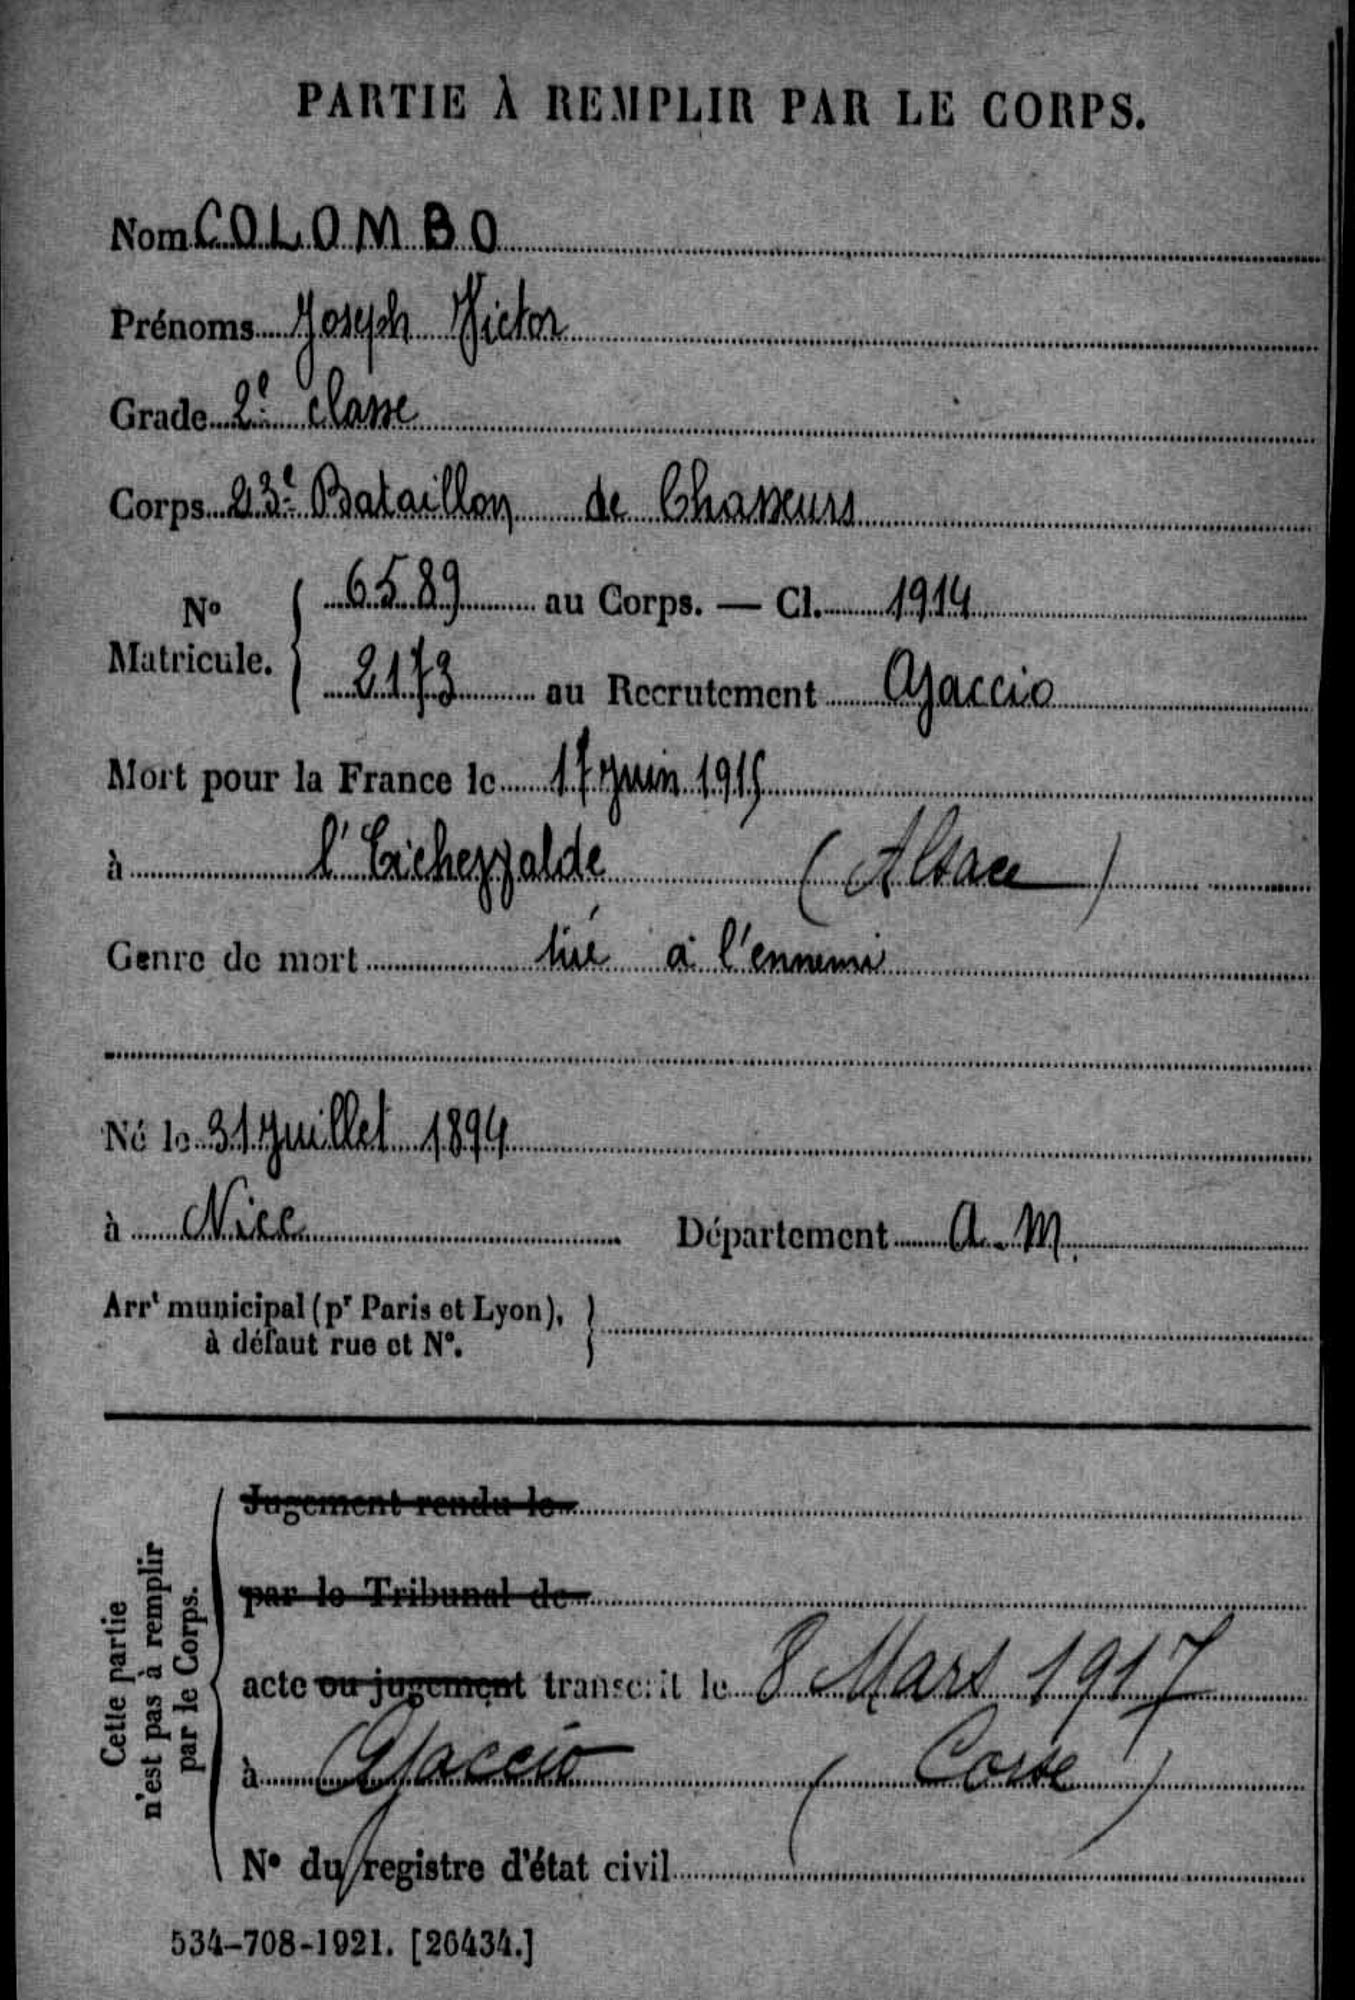 PARTIE À REMPLIR PAR LE CORPS.
Nom COLOMBO
Prénoms Joseph Victor
Grade 2e classe
Corps 23e Bataillon de Chasseurs
No Matricule. { 6589 au Corps. — Cl. 1914
2173 au Recrutement Ajaccio
Mort pour la France le 17 juin 1915
à (Alsace)
Genre de mort tué à l'ennemi
Né le 31 juillet 1894
à Nice Département A.M.
Arrt municipal (pr Paris et Lyon), }
à défaut rue et N°.
Cette partie
n'est pas à remplir
par le Corps.
Jugement rendu le
par le Tribunal de
acte ou jugement transcrit le 8 Mars 1917
à Ajaccio (Corse)
N° du registre d'état civil
534-708-1921. [26434.]